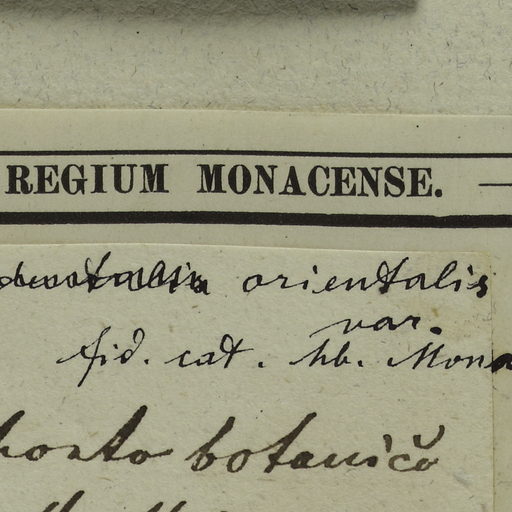 REGIUM MONACENSE. —
orientalis
var.
fid. cat. hb. Mona
horto botanico